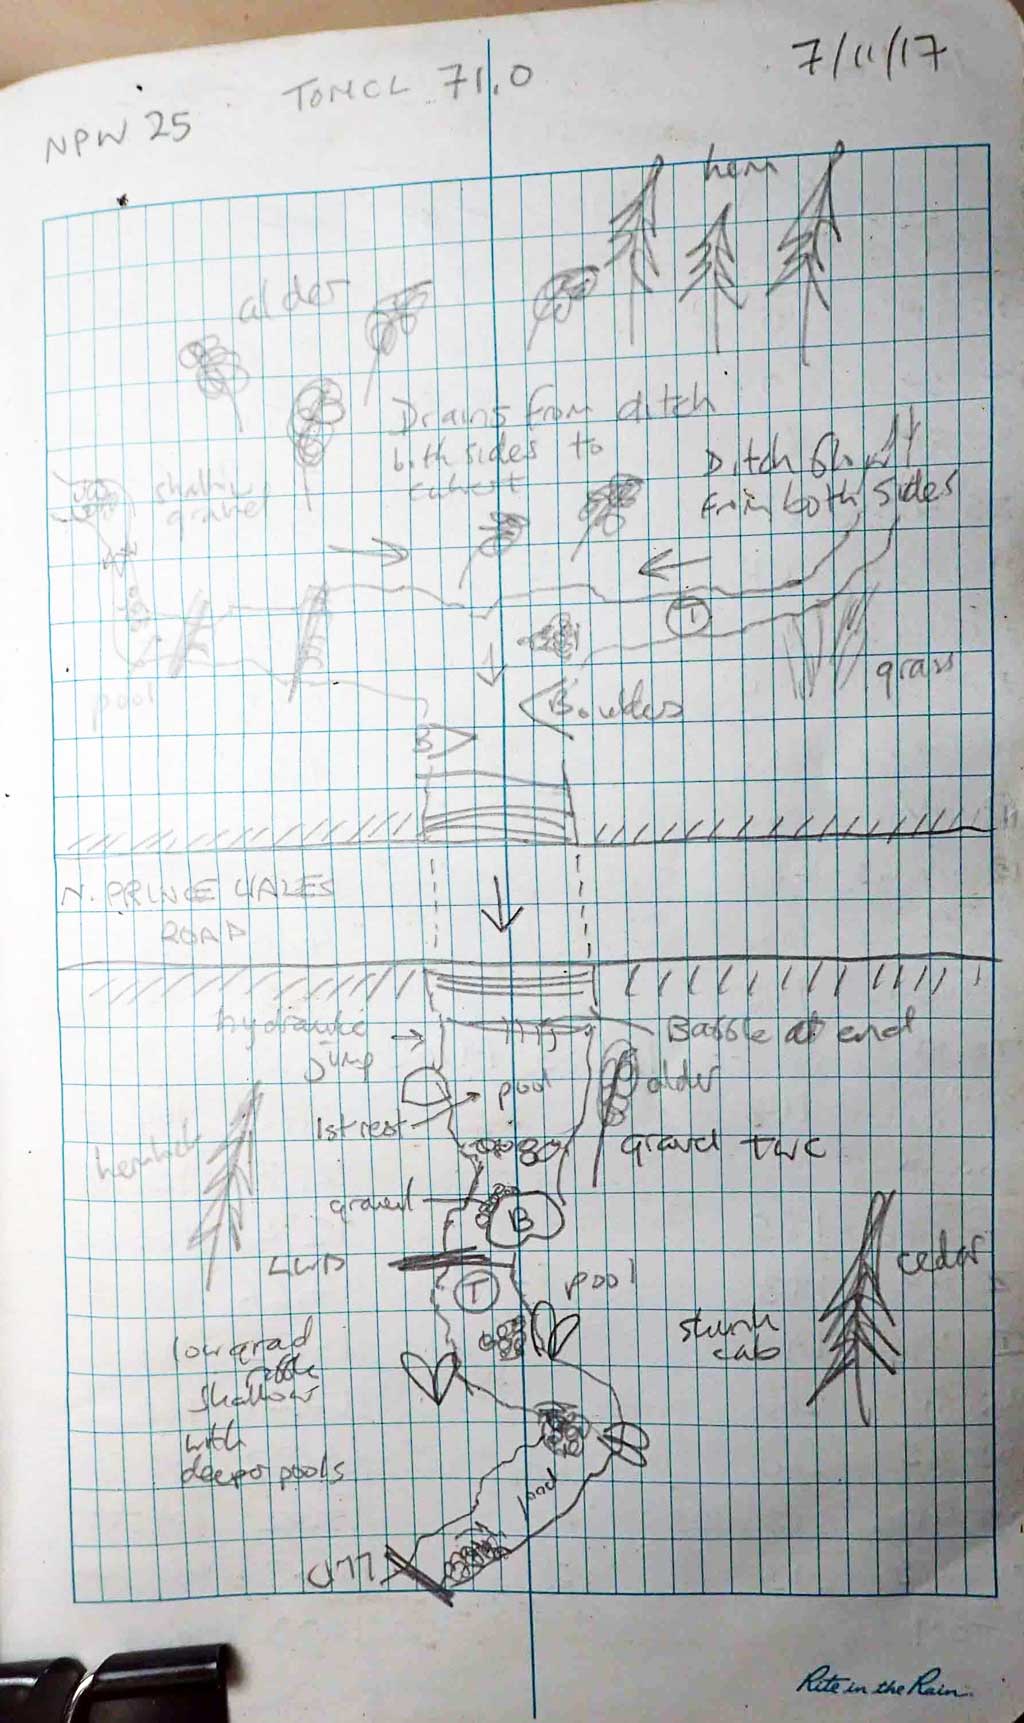 7/11/17
NPW 25
TOMCL 71.0
hem
alder
Drains from ditch
both sides to
culvert
Ditch flow
from both sides
shallow
gravel
T
grass
pool
Boulders
B
N. PRINCE WALES
ROAD
hydraulic
jump
Baffle at end
pool
alder
1st rest
hemlock
gravel TWC
gravel
B
LWD
cedar
T
pool
skunk
cab
low grad
riffle
shallow
with
deeper pools
pool
LWD
Rite in the Rain